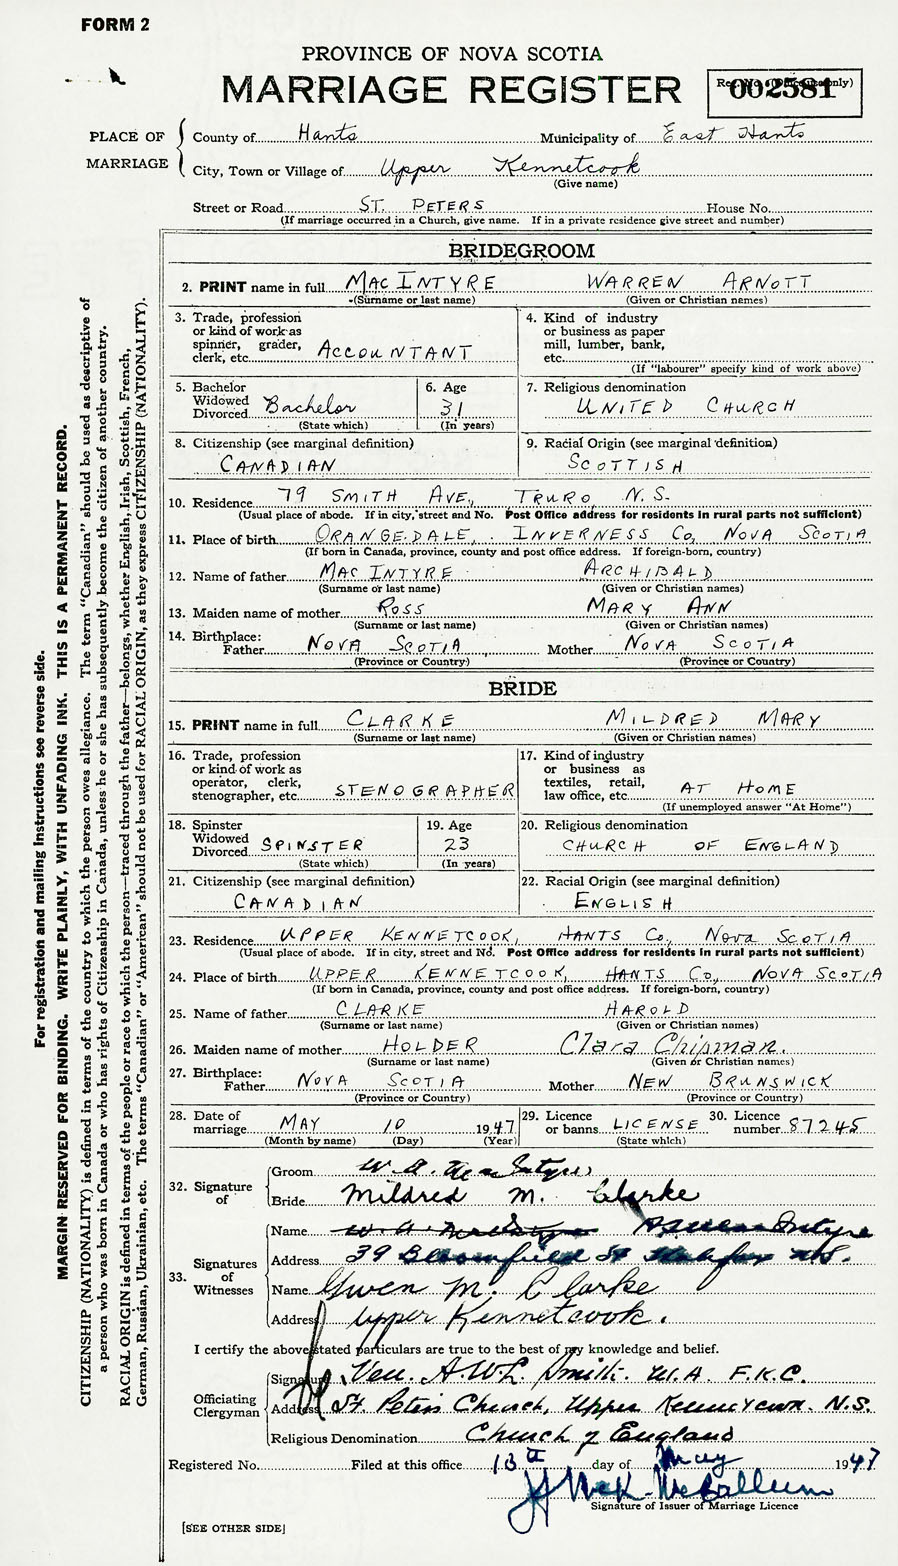 FORM 2
PROVINCE OF NOVA SCOTIA
MARRIAGE REGISTER
Reg. No. (Office use only)
002581
PLACE OF MARRIAGE
County of Hants Municipality of East Hants
City, Town or Village of Upper Kennetcook
(Give name)
Street or Road ST. PETERS House No.
(If marriage occurred in a Church, give name. If in a private residence give street and number)
BRIDEGROOM
2. PRINT name in full MACINTYRE WARREN ARNOTT
(Surname or last name) (Given or Christian names)
3. Trade, profession or kind of work as spinner, grader, clerk, etc. ACCOUNTANT
4. Kind of industry or business as paper mill, lumber, bank, etc.
(If "labourer" specify kind of work above)
5. Bachelor Widowed Divorced Bachelor
(State which)
6. Age 31
(In years)
7. Religious denomination
UNITED CHURCH
8. Citizenship (see marginal definition)
CANADIAN
9. Racial Origin (see marginal definition)
SCOTTISH
10. Residence 79 SMITH AVE., TRURO N.S.
(Usual place of abode. If in city, street and No. Post Office address for residents in rural parts not sufficient)
11. Place of birth ORANGEDALE, INVERNESS CO, NOVA SCOTIA
(If born in Canada, province, county and post office address. If foreign-born, country)
12. Name of father MACINTYRE ARCHIBALD
(Surname or last name) (Given or Christian names)
13. Maiden name of mother ROSS MARY ANN
(Surname or last name) (Given or Christian names)
14. Birthplace:
Father NOVA SCOTIA Mother NOVA SCOTIA
(Province or Country) (Province or Country)
BRIDE
15. PRINT name in full CLARKE MILDRED MARY
(Surname or last name) (Given or Christian names)
16. Trade, profession or kind of work as operator, clerk, stenographer, etc. STENOGRAPHER
17. Kind of industry or business as textiles, retail, law office, etc. AT HOME
(If unemployed answer "At Home")
18. Spinster Widowed Divorced SPINSTER
(State which)
19. Age 23
(In years)
20. Religious denomination
CHURCH OF ENGLAND
21. Citizenship (see marginal definition)
CANADIAN
22. Racial Origin (see marginal definition)
ENGLISH
23. Residence UPPER KENNETCOOK, HANTS CO., NOVA SCOTIA
(Usual place of abode. If in city, street and No. Post Office address for residents in rural parts not sufficient)
24. Place of birth UPPER KENNETCOOK, HANTS CO, NOVA SCOTIA
(If born in Canada, province, county and post office address. If foreign-born, country)
25. Name of father CLARKE HAROLD
(Surname or last name) (Given or Christian names)
26. Maiden name of mother HOLDER Clara Chipman.
(Surname or last name) (Given or Christian names)
27. Birthplace:
Father NOVA SCOTIA Mother NEW BRUNSWICK
(Province or Country) (Province or Country)
28. Date of marriage MAY 10 1947
(Month by name) (Day) (Year)
29. Licence or banns LICENSE
(State which)
30. Licence number 87245
32. Signature of
Groom W. A. MacIntyre
Bride Mildred M. Clarke
33. Signatures of Witnesses
Name
Address 39 Bloomfield St Halifax N.S.
Name Gwen M. Clarke
Address Upper Kennetcook.
I certify the above stated particulars are true to the best of my knowledge and belief.
Officiating Clergyman
Signature Ven. A.W.L. Smith. M.A. F.K.C.
Address St. Peter's Church, Upper Kennetcook. N.S.
Religious Denomination Church of England
Registered No. Filed at this office 13th day of May 1947
Signature of Issuer of Marriage Licence
[SEE OTHER SIDE]
For registration and mailing instructions see reverse side.
MARGIN RESERVED FOR BINDING. WRITE PLAINLY, WITH UNFADING INK. THIS IS A PERMANENT RECORD.
CITIZENSHIP (NATIONALITY) is defined in terms of the country to which the person owes allegiance. The term "Canadian" should be used as descriptive of
a person who was born in Canada or who has rights of Citizenship in Canada, unless he or she has subsequently become the citizen of another country.
RACIAL ORIGIN is defined in terms of the people or race to which the person—traced through the father—belongs, whether English, Irish, Scottish, French,
German, Russian, Ukrainian, etc. The terms "Canadian" or "American" should not be used for RACIAL ORIGIN, as they express CITIZENSHIP (NATIONALITY).